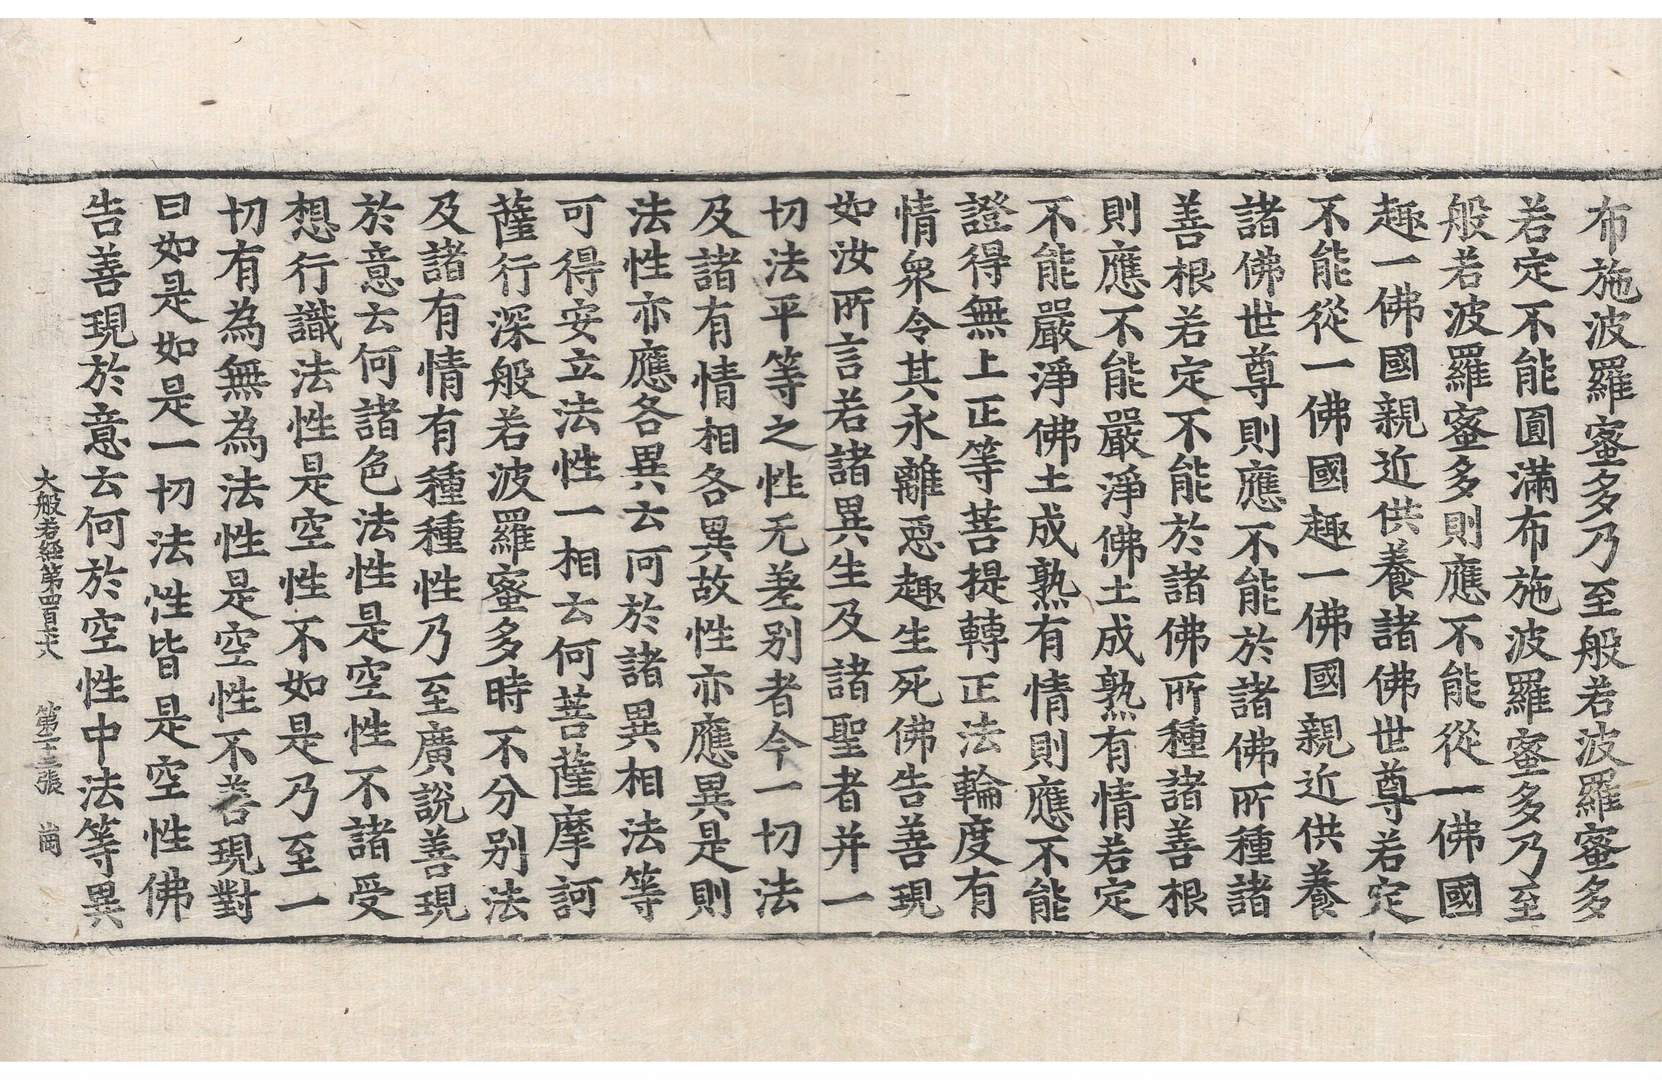 布施波羅蜜多乃至般若波羅蜜多
若定不能圓滿布施波羅蜜多乃至
般若波羅蜜多則應不能從一佛國
趣一佛國親近供養諸佛世尊若定
不能從一佛國趣一佛國親近供養
諸佛世尊則應不能於諸佛所種諸
善根若定不能於諸佛所種諸善根
則應不能嚴淨佛土成熟有情若定
不能嚴淨佛土成熟有情則應不能
證得無上正等菩提轉正法輪度有
情衆令其永離惡趣生死佛告善現
如汝所言若諸異生及諸聖者并一
切法平等之性无差別者今一切法
及諸有情相各異故性亦應異是則
法性亦應各異云何於諸異相法等
可得安立法性一相云何菩薩摩訶
薩行深般若波羅蜜多時不分別法
及諸有情有種種性乃至廣說善現
於意云何諸色法性是空性不諸受
想行識法性是空性不如是乃至一
切有為無為法性是空性不善現對
曰如是如是一切法性皆是空性佛
告善現於意云何於空性中法等異
大般若經第四百七十八 第二十三張 崗